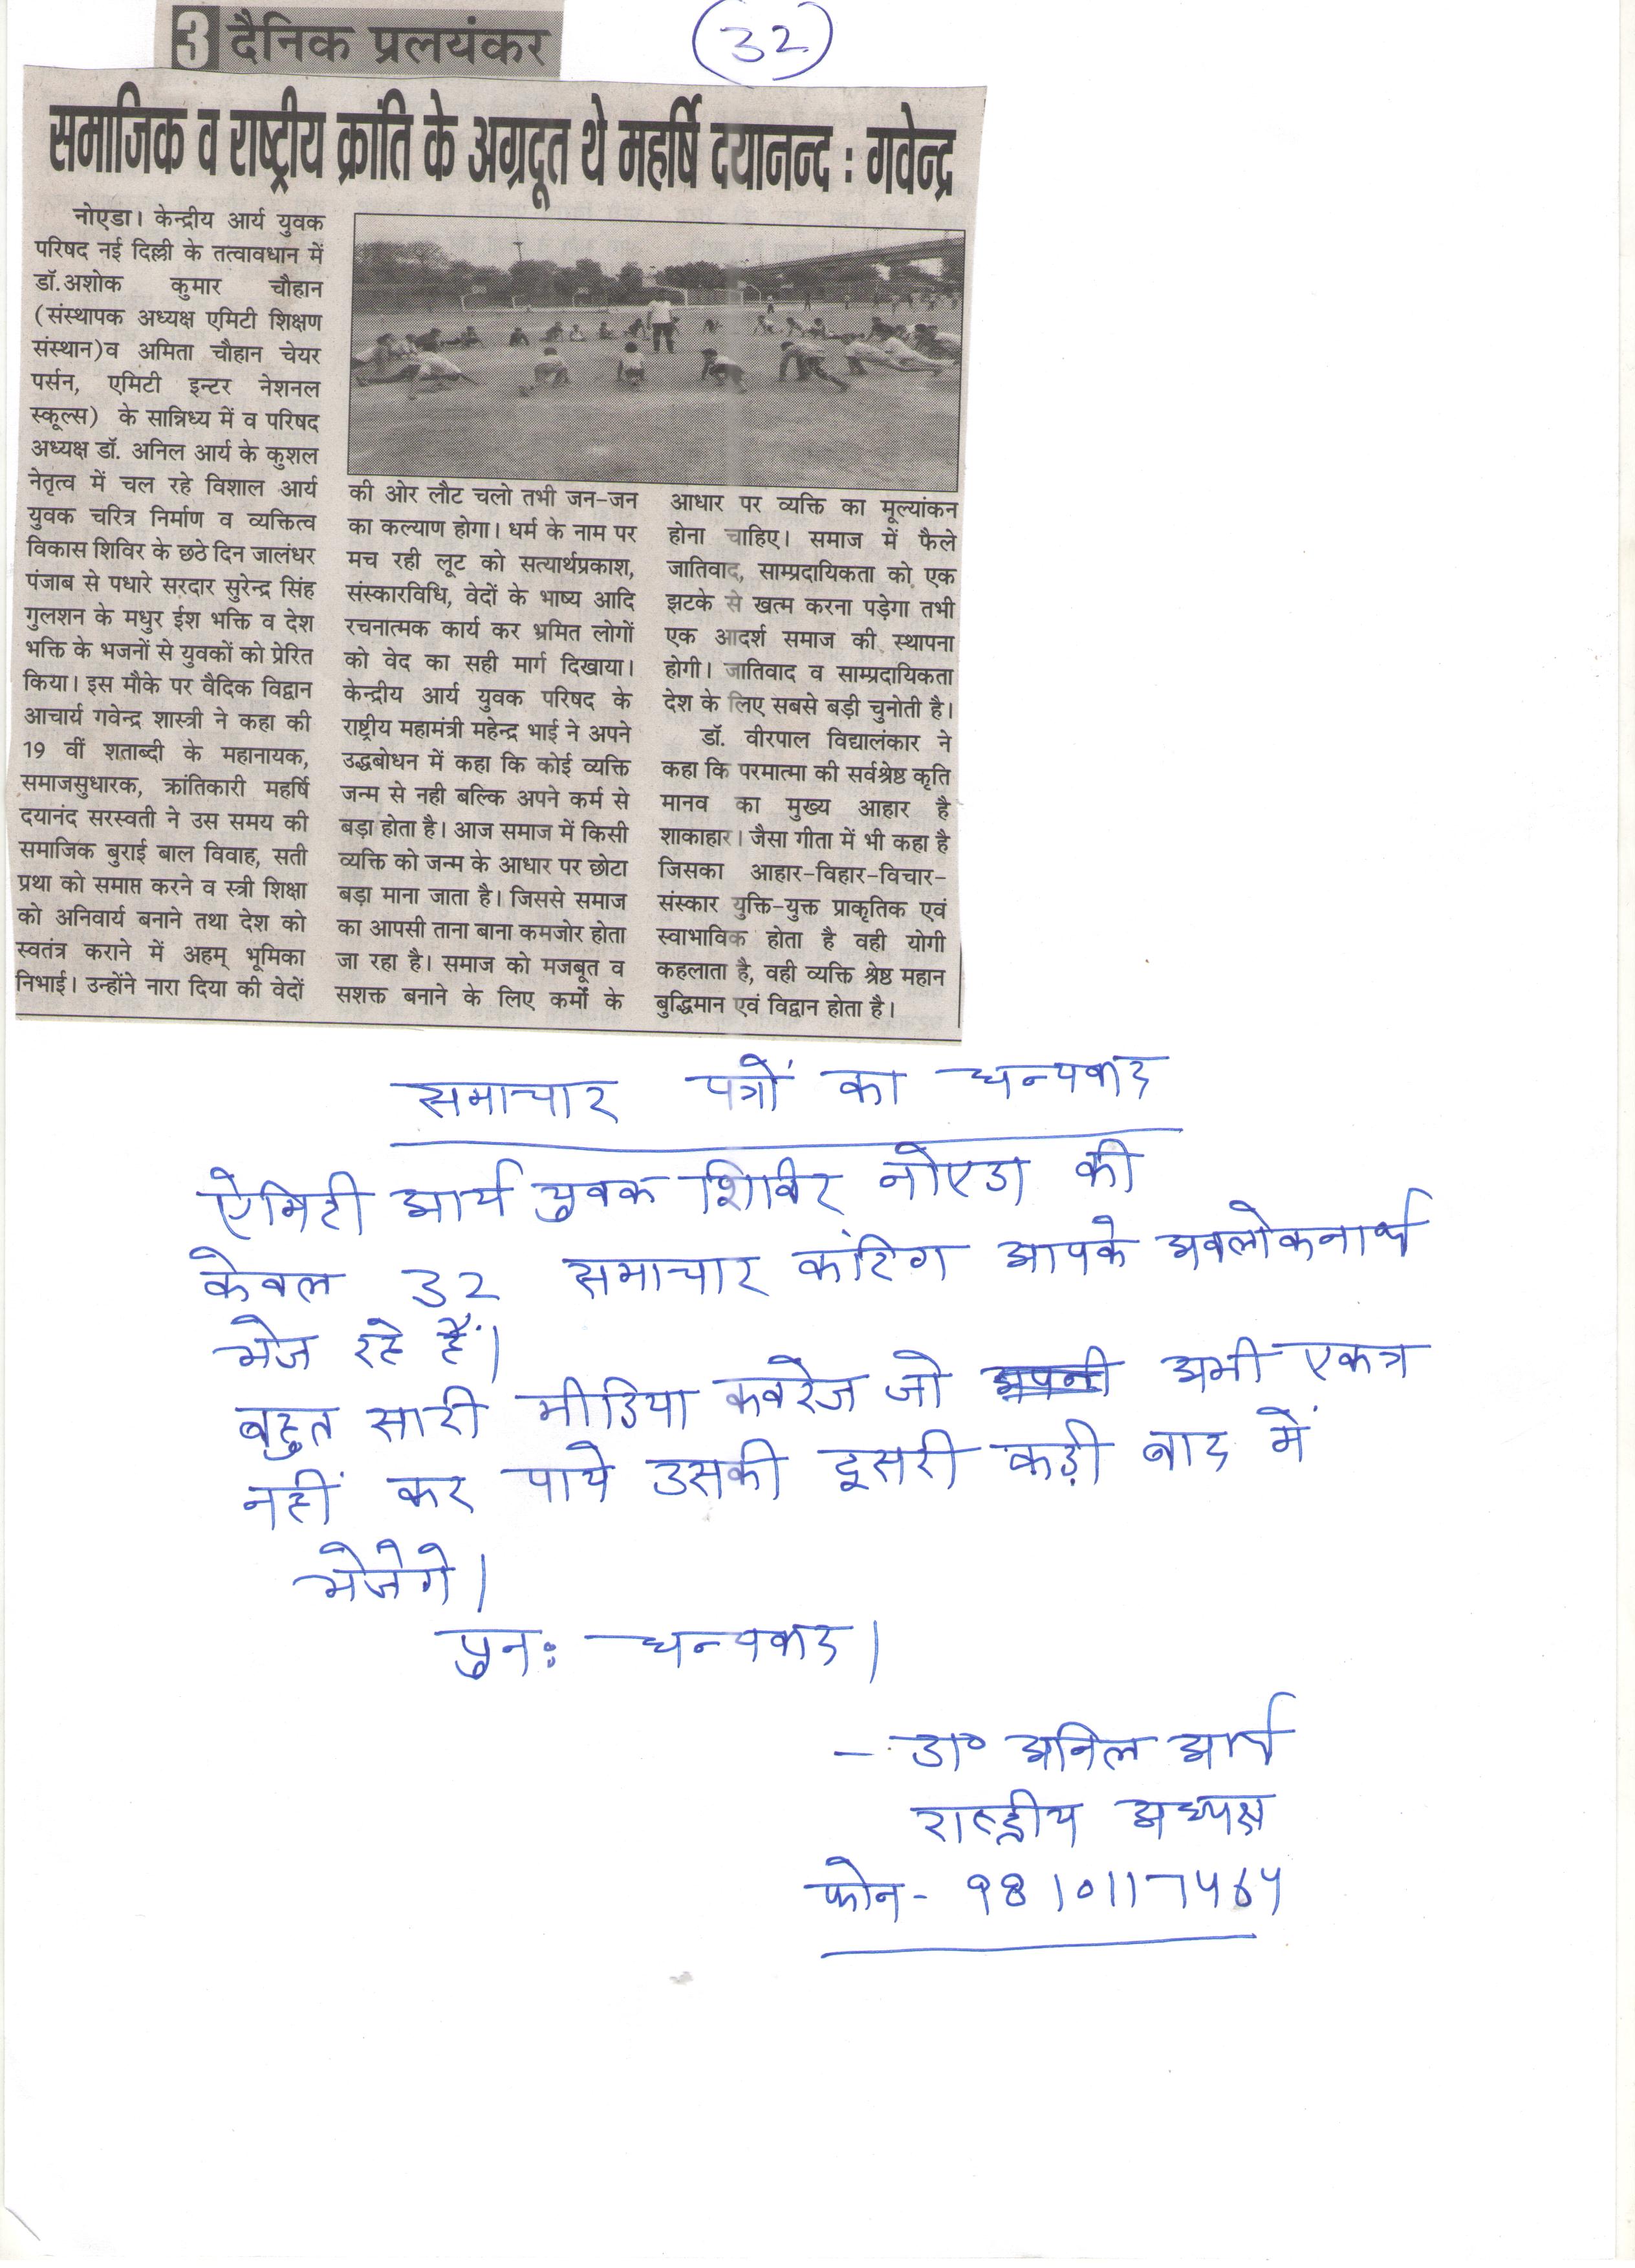 3 दैनिक प्रलयंकर
32
समाजिक व राष्ट्रीय क्रांति के अग्रदूत थे महर्षि दयानन्द : गवेन्द्र
नोएडा। केन्द्रीय आर्य युवक
परिषद नई दिल्ली के तत्वावधान में
डॉ.अशोक कुमार चौहान
(संस्थापक अध्यक्ष एमिटी शिक्षण
संस्थान)व अमिता चौहान चेयर
पर्सन, एमिटी इन्टर नेशनल
स्कूल्स) के सान्निध्य में व परिषद
अध्यक्ष डॉ. अनिल आर्य के कुशल
नेतृत्व में चल रहे विशाल आर्य
युवक चरित्र निर्माण व व्यक्तित्व
विकास शिविर के छठे दिन जालंधर
पंजाब से पधारे सरदार सुरेन्द्र सिंह
गुलशन के मधुर ईश भक्ति व देश
भक्ति के भजनों से युवकों को प्रेरित
किया। इस मौके पर वैदिक विद्वान
आचार्य गवेन्द्र शास्त्री ने कहा की
19 वीं शताब्दी के महानायक,
समाजसुधारक, क्रांतिकारी महर्षि
दयानंद सरस्वती ने उस समय की
समाजिक बुराई बाल विवाह, सती
प्रथा को समाप्त करने व स्त्री शिक्षा
को अनिवार्य बनाने तथा देश को
स्वतंत्र कराने में अहम् भूमिका
निभाई। उन्होंने नारा दिया की वेदों
की ओर लौट चलो तभी जन-जन
का कल्याण होगा। धर्म के नाम पर
मच रही लूट को सत्यार्थप्रकाश,
संस्कारविधि, वेदों के भाष्य आदि
रचनात्मक कार्य कर भ्रमित लोगों
को वेद का सही मार्ग दिखाया।
केन्द्रीय आर्य युवक परिषद के
राष्ट्रीय महामंत्री महेन्द्र भाई ने अपने
उद्धबोधन में कहा कि कोई व्यक्ति
जन्म से नही बल्कि अपने कर्म से
बड़ा होता है। आज समाज में किसी
व्यक्ति को जन्म के आधार पर छोटा
बड़ा माना जाता है। जिससे समाज
का आपसी ताना बाना कमजोर होता
जा रहा है। समाज को मजबूत व
सशक्त बनाने के लिए कर्मों के
आधार पर व्यक्ति का मूल्यांकन
होना चाहिए। समाज में फैले
जातिवाद, साम्प्रदायिकता को एक
झटके से खत्म करना पड़ेगा तभी
एक आदर्श समाज की स्थापना
होगी। जातिवाद व साम्प्रदायिकता
देश के लिए सबसे बड़ी चुनोती है।
डॉ. वीरपाल विद्यालंकार ने
कहा कि परमात्मा की सर्वश्रेष्ठ कृति
मानव का मुख्य आहार है
शाकाहार। जैसा गीता में भी कहा है
जिसका आहार-विहार-विचार-
संस्कार युक्ति-युक्त प्राकृतिक एवं
स्वाभाविक होता है वही योगी
कहलाता है, वही व्यक्ति श्रेष्ठ महान
बुद्धिमान एवं विद्वान होता है।
समाचार पत्रों का धन्यवाद
ऐमिटी आर्य युवक शिविर नोएडा की
केवल 32 समाचार कटिंग आपके अवलोकनार्थ
भेज रहे हैं।
बहुत सारी मीडिया कवरेज जो अभी एकत्र
नहीं कर पाये उसकी दूसरी कड़ी बाद में
भेजेगे।
पुनः धन्यवाद।
- डा० अनिल आर्य
राष्ट्रीय अध्यक्ष
फोन - 9810117464